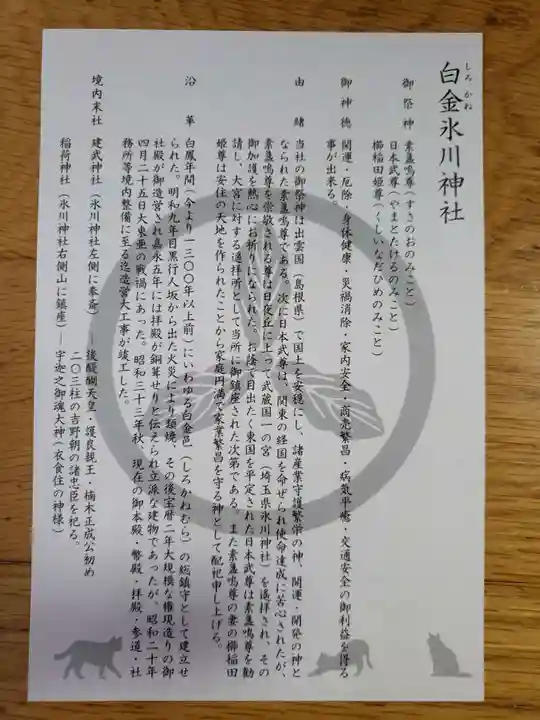 しろかね
白金氷川神社
御祭神
素盞嗚尊（すさのおのみこと）
日本武尊（やまとたけるのみこと）
櫛稲田姫尊（くしいなだひめのみこと）
御神徳
開運・厄除・身体健康・災禍消除・家内安全・商売繁昌・病気平癒・交通安全の御利益を得る
事が出来る。
由緒
当社の御祭神は出雲国（島根県）で国土を安穏にし、諸産業守護繁栄の神、開運・開発の神と
なられた素盞嗚尊である。次に日本武尊は、関東の経国を命ぜられ使命達成に苦心されたが、
素盞嗚尊を崇敬される尊は日夜丘に上って武蔵国一の宮（埼玉県氷川神社）を遥拝され、その
御加護を熱心にお祈りになられた。お陰で目出たく東国を平定された日本武尊は素盞嗚尊を勧
請し、大宮に対する遥拝所として当所に御鎮座された次第である。また素盞嗚尊の妻の櫛稲田
姫尊は安住の天地を作られたことから家庭円満で家業繁昌を守る神として配祀申し上げる。
沿革
白鳳年間（今より一三〇〇年以上前）にいわゆる白金邑（しろかねむら）の総鎮守として建立せ
られた。明和九年目黒行人坂から出た火災により類焼、その後宝暦二年大規模な権現造りの御
社殿が御造営され嘉永五年には拝殿が銅葺せりと伝えられ立派な建物であったが、昭和二十年
四月二十五日大東亜の戦禍にあった。昭和三十三年秋、現在の御本殿・幣殿・拝殿・参道・社
務所等境内整備に至る迄造営大工事が竣工した。
境内末社
建武神社（氷川神社左側に奉斎）―後醍醐天皇・護良親王・楠木正成公初め
二〇三柱の吉野朝の諸忠臣を祀る。
稲荷神社（氷川神社右側山に鎮座）―宇迦之御魂大神（衣食住の神様）